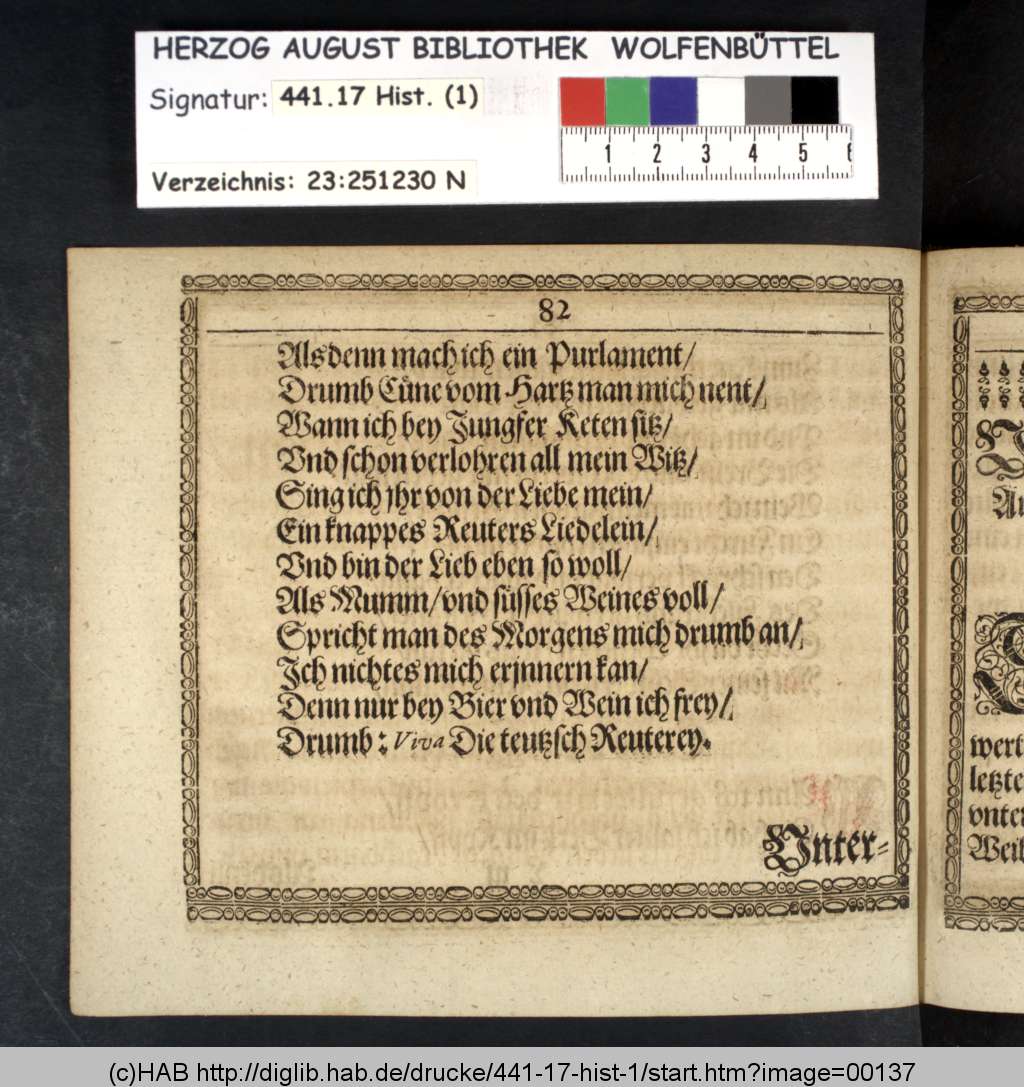 HERZOG AUGUST BIBLIOTHEK WOLFENBÜTTEL
Signatur: 441.17 Hist. (1)
1 2 3 4 5 6
Verzeichnis: 23:251230 N
82
Alsdenn mach ich ein Purlament/
Drumb Cûne vom Hartz man mich nent/
Wann ich bey Jungfer Keten sitz/
Vnd schon verlohren all mein Witz/
Sing ich jhr von der Liebe mein/
Ein knappes Reuters Liedelein/
Vnd bin der Lieb eben so woll/
Als Mumm/vnd süsses Weines voll/
Spricht man des Morgens mich drumb an/
Ich nichtes mich erjnnern kan/
Denn nur bey Bier vnd Wein ich frey/
Drumb: Viva Die teutzsch Reuterey.
Vnter-
wert
letzte
vnter
Weib
(c)HAB http://diglib.hab.de/drucke/441-17-hist-1/start.htm?image=00137